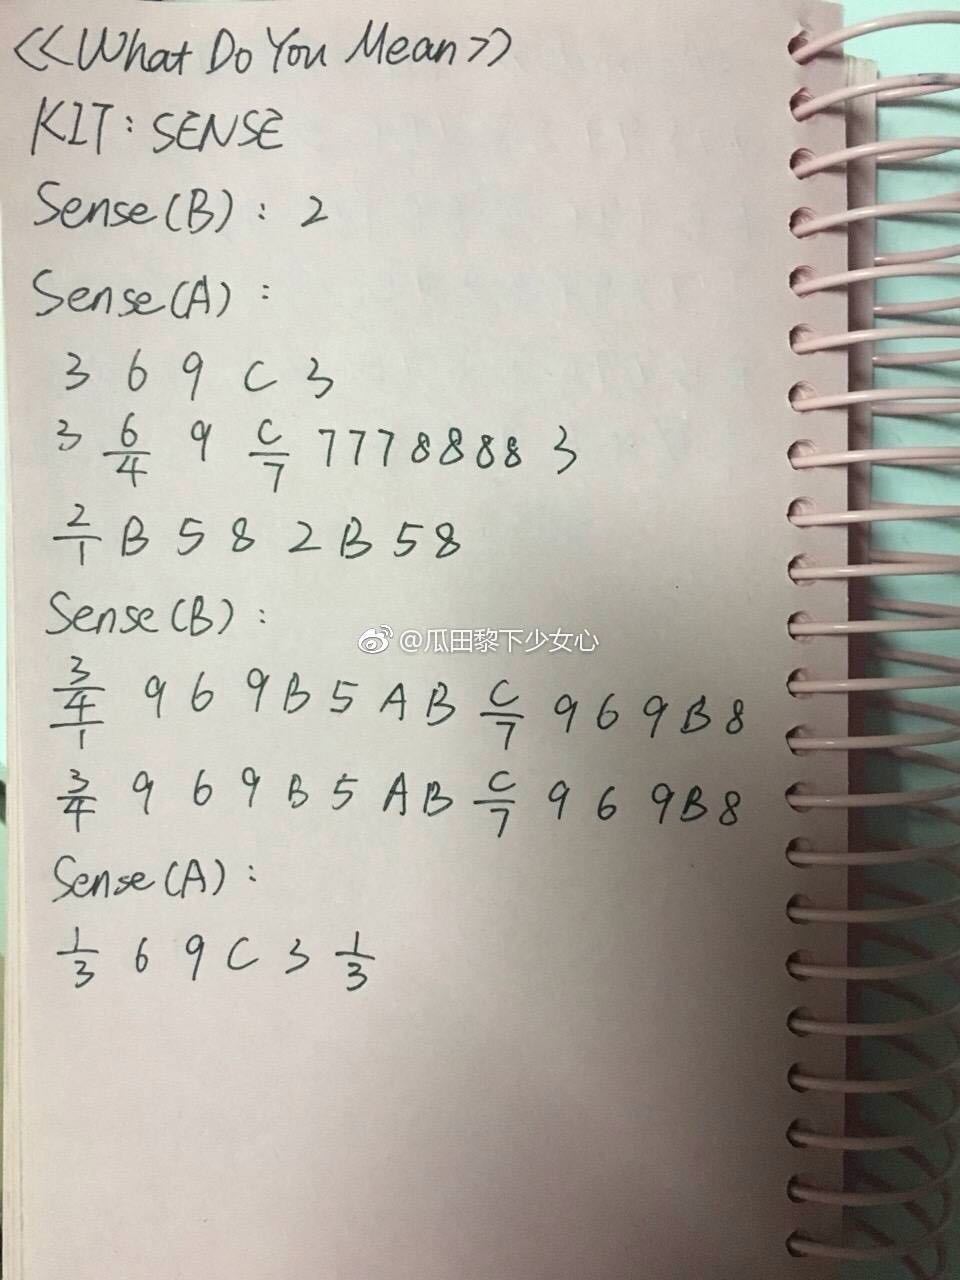 <<What Do You Mean>>
KIT: SENSE
Sense(B): 2
Sense(A):
3 6 9 C 3
3 6/4 9 C/7 7 7 7 8 8 8 8 3
2/1 B 5 8 2 B 5 8
Sense(B):
@瓜田黎下少女心
3/4/1 9 6 9 B 5 A B C/7 9 6 9 B 8
3/4 9 6 9 B 5 A B C/7 9 6 9 B 8
Sense(A):
1/3 6 9 C 3 1/3